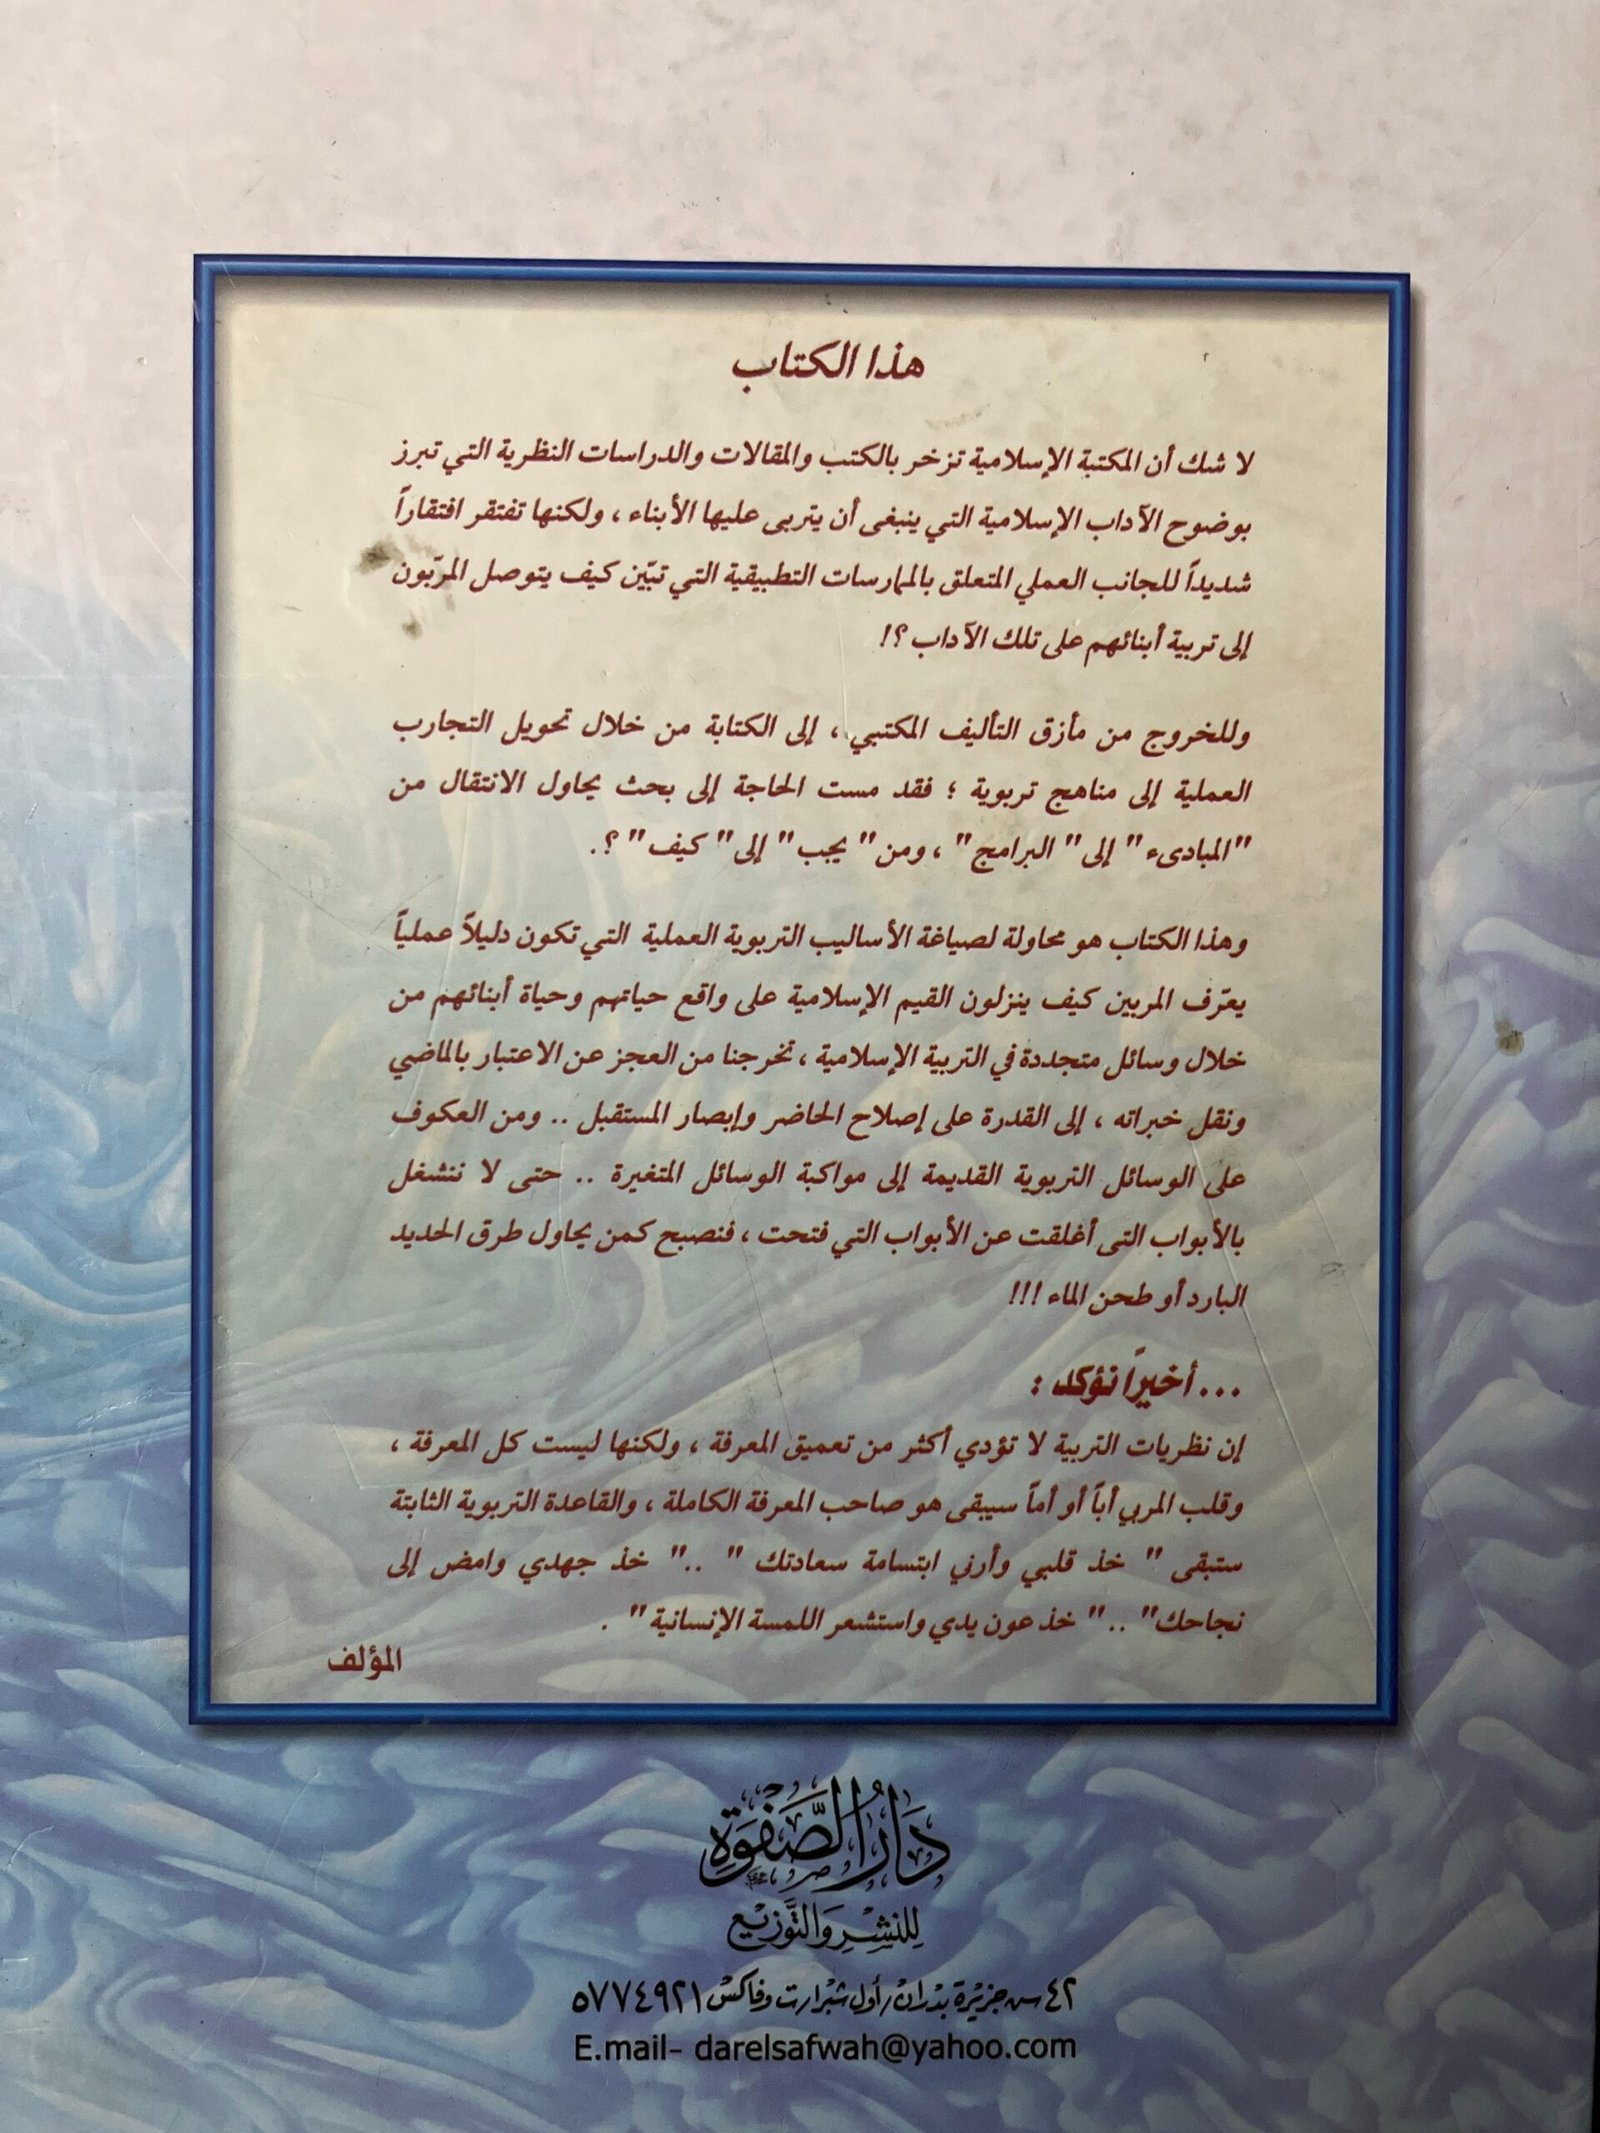 هذا الكتاب
لا شك أن المكتبة الإسلامية تزخر بالكتب والمقالات والدراسات النظرية التي تبرز
بوضوح الآداب الإسلامية التي ينبغى أن يتربى عليها الأبناء ، ولكنها تفتقر افتقاراً
شديداً للجانب العملي المتعلق بالممارسات التطبيقية التي تبيّن كيف يتوصل المربّون
إلى تربية أبنائهم على تلك الآداب ؟!
وللخروج من مأزق التأليف المكتبي ، إلى الكتابة من خلال تحويل التجارب
العملية إلى مناهج تربوية ؛ فقد مست الحاجة إلى بحث يحاول الانتقال من
"المبادىء" إلى" البرامج" ، ومن" يجب" إلى" كيف" ؟.
وهذا الكتاب هو محاولة لصياغة الأساليب التربوية العملية التي تكون دليلاً عملياً
يعرّف المربين كيف ينزلون القيم الإسلامية على واقع حياتهم وحياة أبنائهم من
خلال وسائل متجددة في التربية الإسلامية ، تخرجنا من العجز عن الاعتبار بالماضي
ونقل خبراته ، إلى القدرة على إصلاح الحاضر وإبصار المستقبل .. ومن العكوف
على الوسائل التربوية القديمة إلى مواكبة الوسائل المتغيرة .. حتى لا ننشغل
بالأبواب التى أغلقت عن الأبواب التي فتحت ، فنصبح كمن يحاول طرق الحديد
البارد أو طحن الماء !!!
... أخيراً نؤكد :
إن نظريات التربية لا تؤدي أكثر من تعميق المعرفة ، ولكنها ليست كل المعرفة ،
وقلب المربي أباً أو أماً سيبقى هو صاحب المعرفة الكاملة ، والقاعدة التربوية الثابتة
ستبقى " خذ قلبي وأرني ابتسامة سعادتك " .." خذ جهدي وامض إلى
نجاحك" .." خذ عون يدي واستشعر اللمسة الإنسانية" .
المؤلف
دَارُ الصَّفْوَة
لِلنَّشْرِ وَالتَّوْزِيع
٤٢ ش جزيرة بدران / أول شبرا ت وفاكس ٥٧٧٤٩٢١
E.mail- darelsafwah@yahoo.com